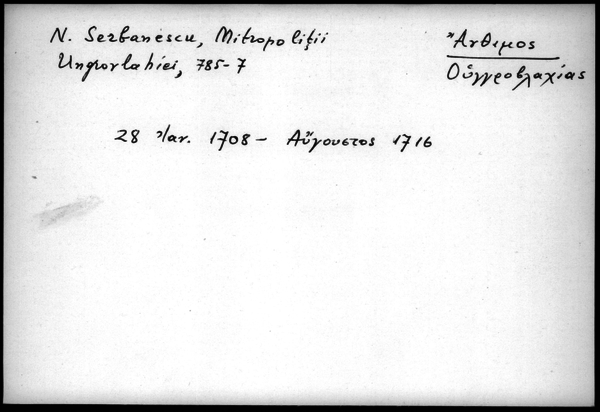 N. Serbanescu, Mitropoliţii
Ungrovlahiei, 785-7
Ἄνθιμος
Οὐγγροβλαχίας
28 Ἰαν. 1708 – Αὔγουστος 1716